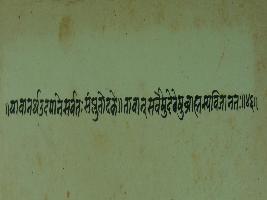 ॥यावानर्थउदपानेसर्वतःसंप्लुतोदके॥तावान्सर्वेषुवेदेषुब्राह्मणस्यविजानतः॥४६॥